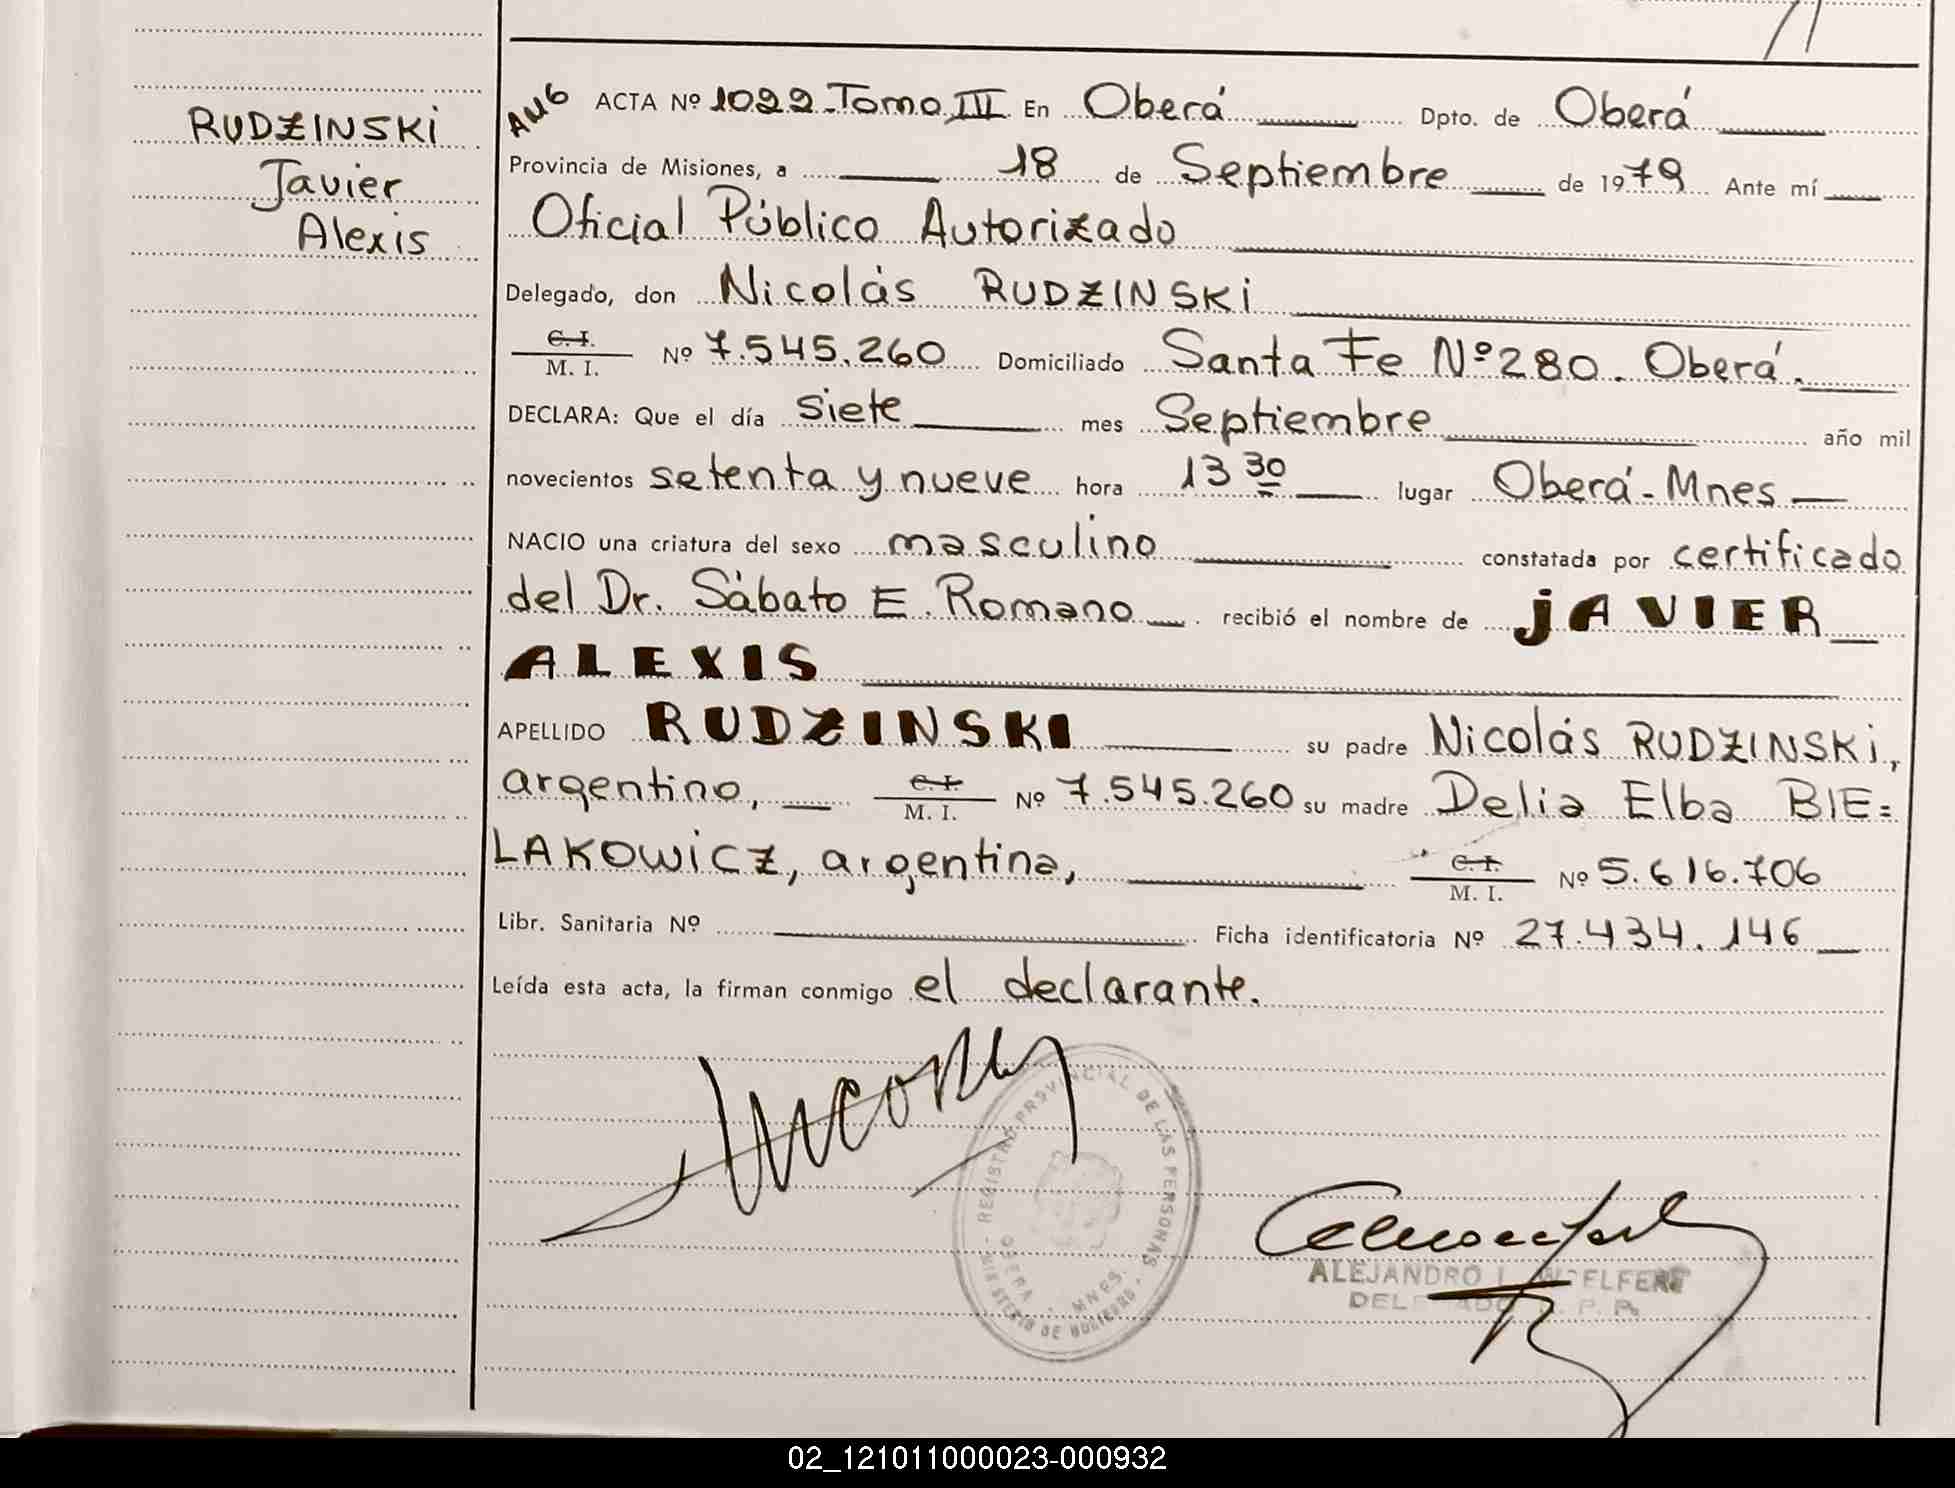 RUDZINSKi
Javier
Alexis
ACTA Nº 1022 - Tomo III En Oberá Dpto. de Oberá
Provincia de Misiones, a 18 de Septiembre de 1979 Ante mí
Oficial Público Autorizado
Delegado, don Nicolás RUDZINSKi
C. I.
M. I. Nº 7.545.260 Domiciliado Santa Fe Nº 280. Oberá.
DECLARA: Que el día siete mes Septiembre año mil
novecientos setenta y nueve hora 13 30 lugar Oberá - Mnes
NACIO una criatura del sexo masculino constatada por certificado
del Dr. Sábato E. Romano recibió el nombre de jAVIER
ALEXIS
APELLIDO RUDZINSKI su padre Nicolás RUDZINSKi,
argentino, C. I. M. I. Nº 7.545.260 su madre Delia Elba BIE=
LAKOWiCZ, argentina, C. I. M. I. Nº 5.616.706
Libr. Sanitaria Nº Ficha identificatoria Nº 27.434.146
Leída esta acta, la firman conmigo el declarante.
REGISTRO PROVINCIAL DE LAS PERSONAS
MINISTERIO DE GOBIERNO
OBERA - MNES.
ALEJANDRO
02_121011000023-000932